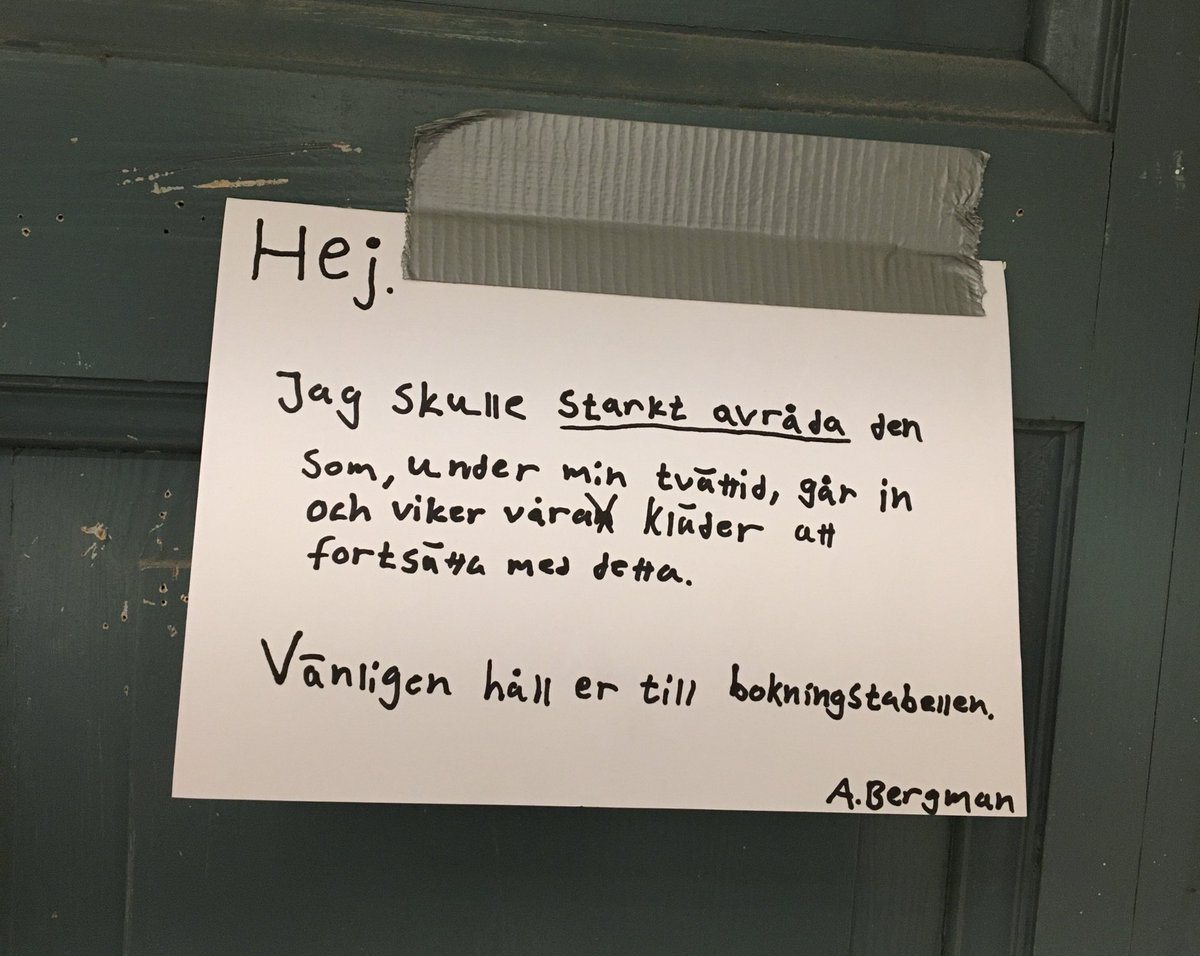 Hej.
Jag skulle starkt avråda den
som, under min tvättid, går in
och viker våra kläder att
fortsätta med detta.
Vänligen håll er till bokningstabellen.
A.Bergman